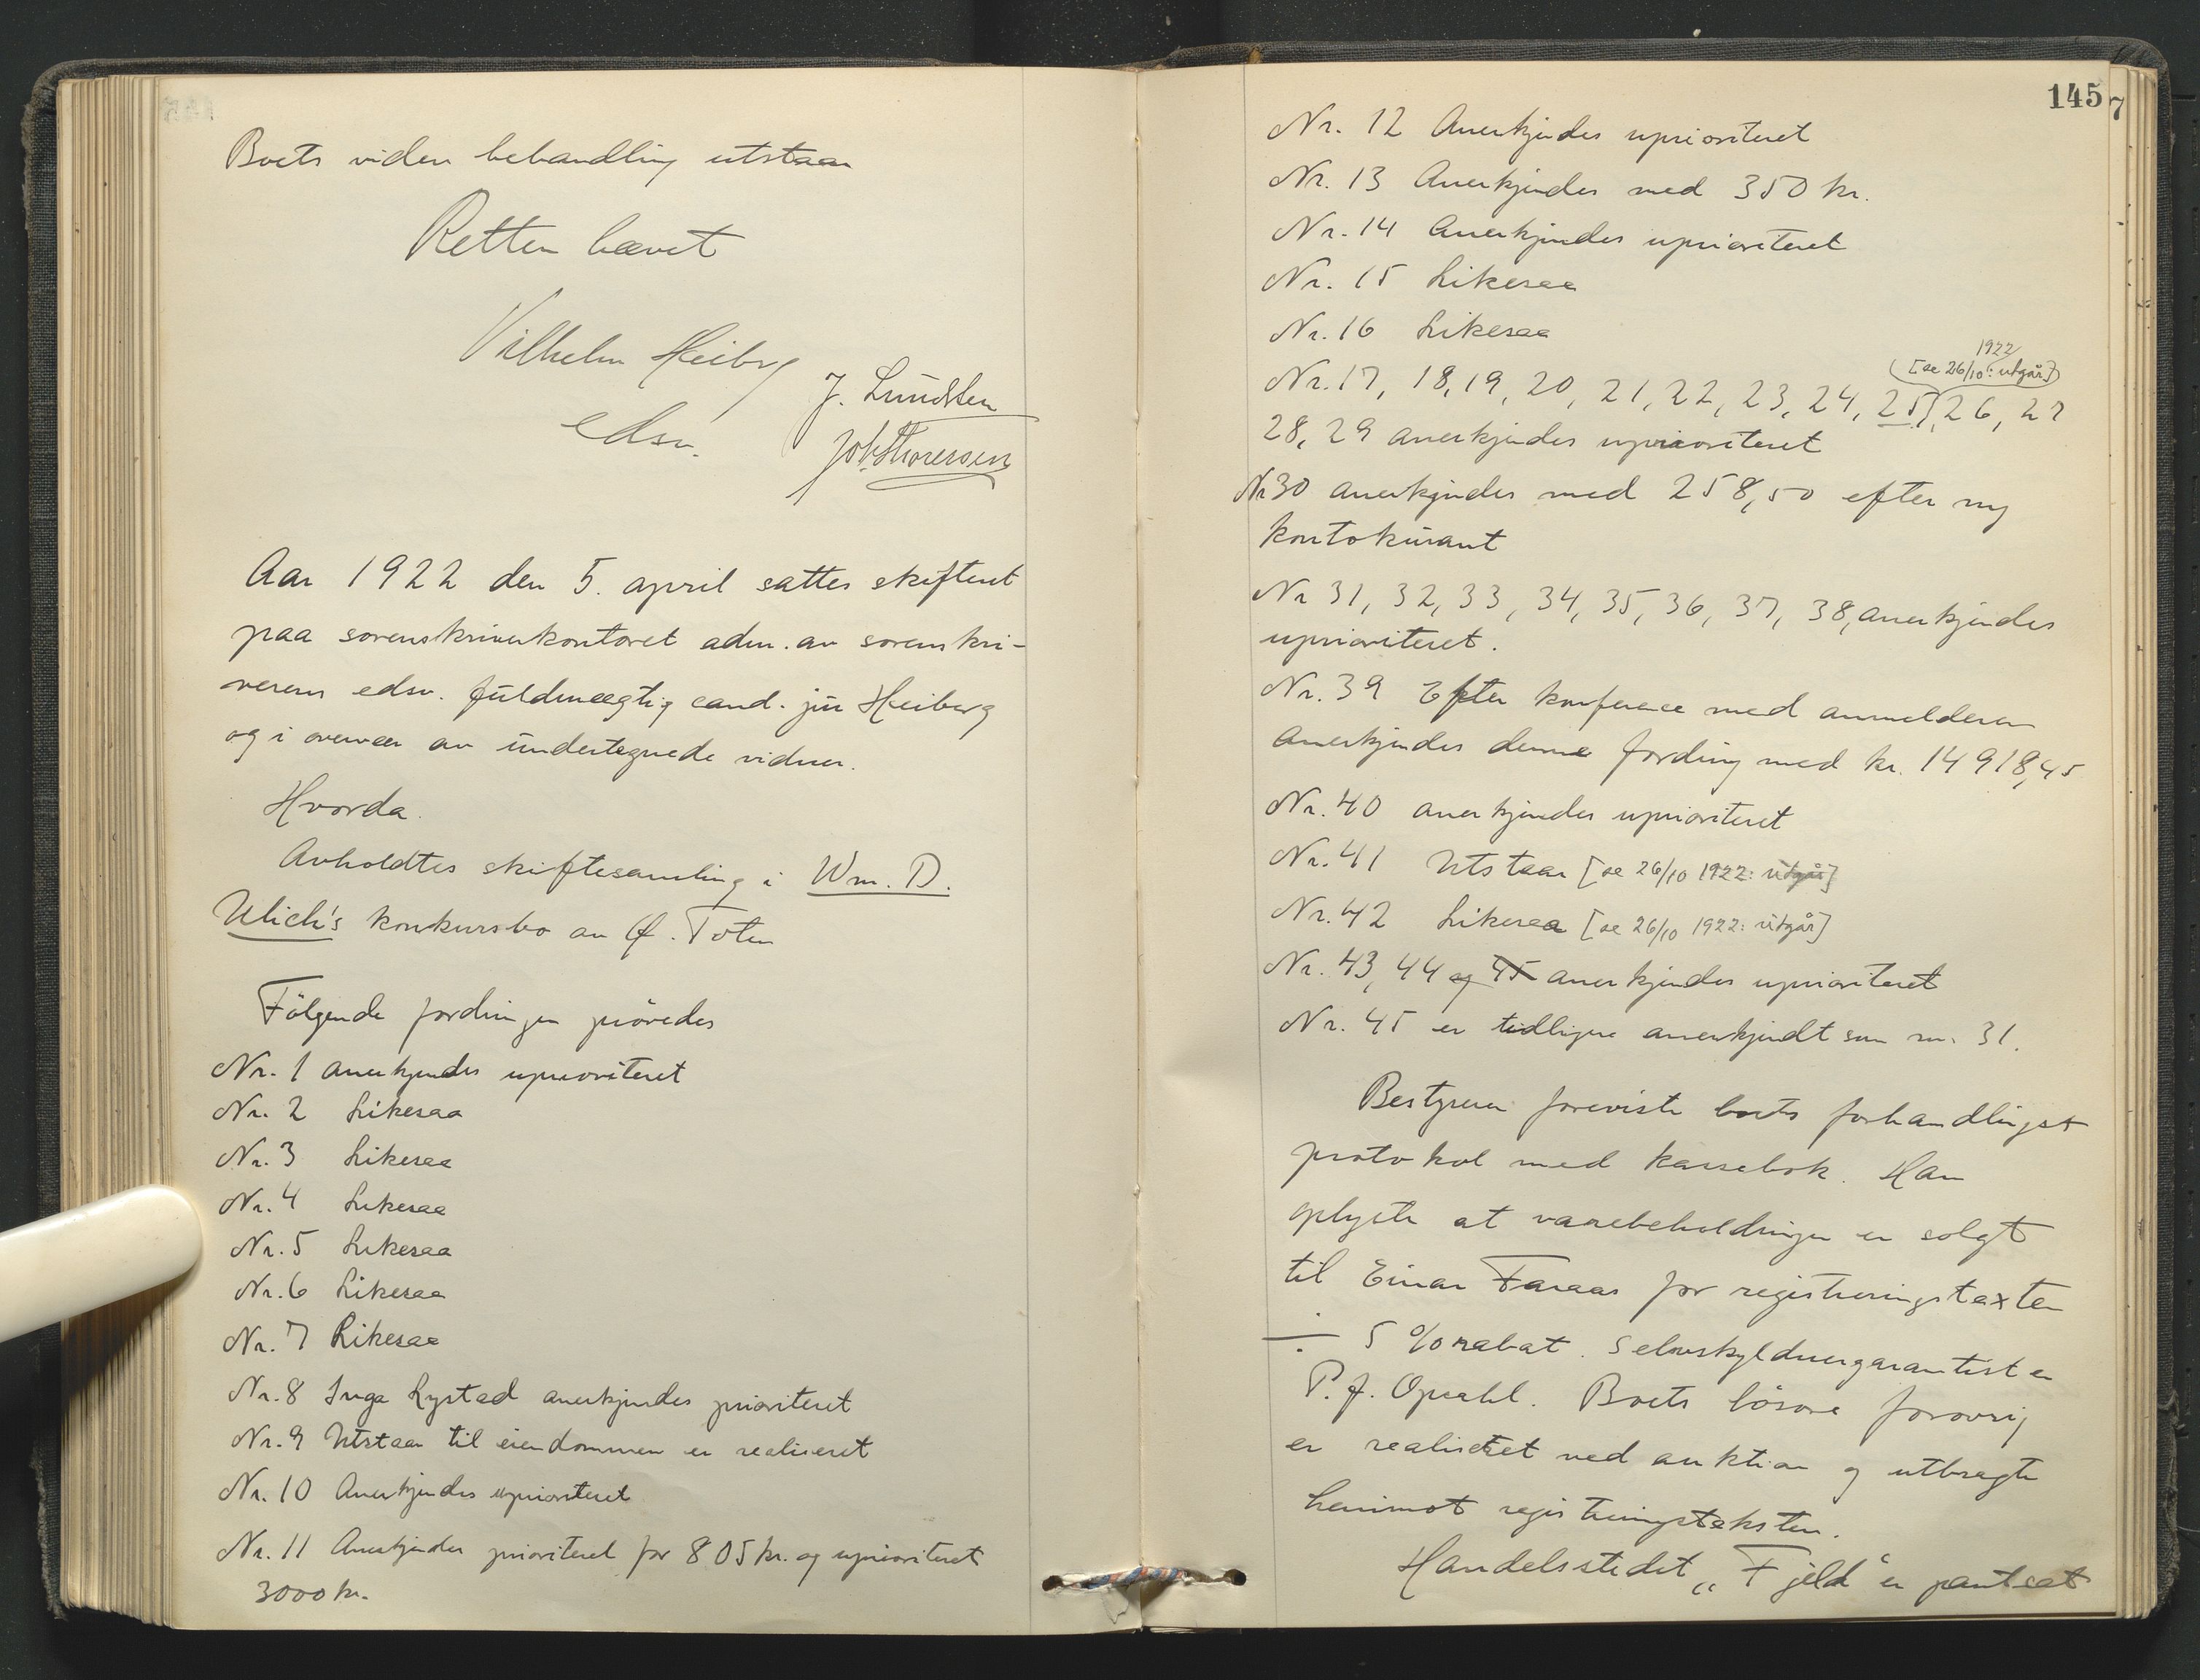 Boets videre behandling utstaar
Retten hævet
Vilhelm Heiberg
edsv.
J. Lundsten
Joh. Thoresen
Aar 1922 den 5. april sattes skifteret
paa sorenskriverkontoret adm. av sorenskri-
verens edsv. fuldmægtig cand. jur Heiberg
og i overvær av undertegnede vidner.
Hvorda.
Avholdtes skiftesamling i Wm. D.
Ulich's konkursbo av Ø. Toten
Følgende fordringer prövedes
Nr. 1 anerkjendes uprioriteret
Nr. 2 Likesaa
Nr. 3 Likesaa
Nr. 4 Likesaa
Nr. 5 Likesaa
Nr. 6 Likesaa
Nr. 7 Likesaa
Nr. 8 Inga Lystad anerkjendes prioriteret
Nr. 9 Utstaar til eiendommen er realiseret
Nr. 10 Anerkjendes uprioriteret
Nr. 11 Anerkjendes prioriteret for 805 kr. og uprioriteret
3000 kr.
145
7
Nr. 12 Anerkjendes uprioriteret
Nr. 13 Anerkjendes med 350 kr.
Nr. 14 Anerkjendes uprioriteret
Nr. 15 Likesaa
Nr. 16 Likesaa
1922
[se 26/10: utgår]
Nr. 17, 18, 19, 20, 21, 22, 23, 24, 25, 26, 27
28, 29 anerkjendes uprioriteret
Nr 30 anerkjendes med 258,50 efter ny
kontokurant
Nr 31, 32, 33, 34, 35, 36, 37, 38, anerkjendes
uprioriteret.
Nr. 39 Efter konference med anmelderen
anerkjendes denne fordring med kr. 14918,45
Nr. 40 anerkjendes uprioriteret
Nr. 41 Utstaar [se 26/10 1922: utgår]
Nr. 42 Likesaa [se 26/10 1922: utgår]
Nr. 43, 44 og 45 anerkjendes uprioriteret
Nr. 45 er tidligere anerkjendt som nr. 31.
Bestyreren foreviste boets forhandlings
protokol med kassebok. Han
oplyste at varebeholdningen er solgt
til Einar Faraas for registreringstaxten
÷ 5 % rabat. Selvskyldnergarantist er
P. J. Opsahl. Boets lösöre forovrig
er realiseret ved auktion og utbragte
henimot registreringstaksten.
Handelsstedet „Fjeld" er pantsat